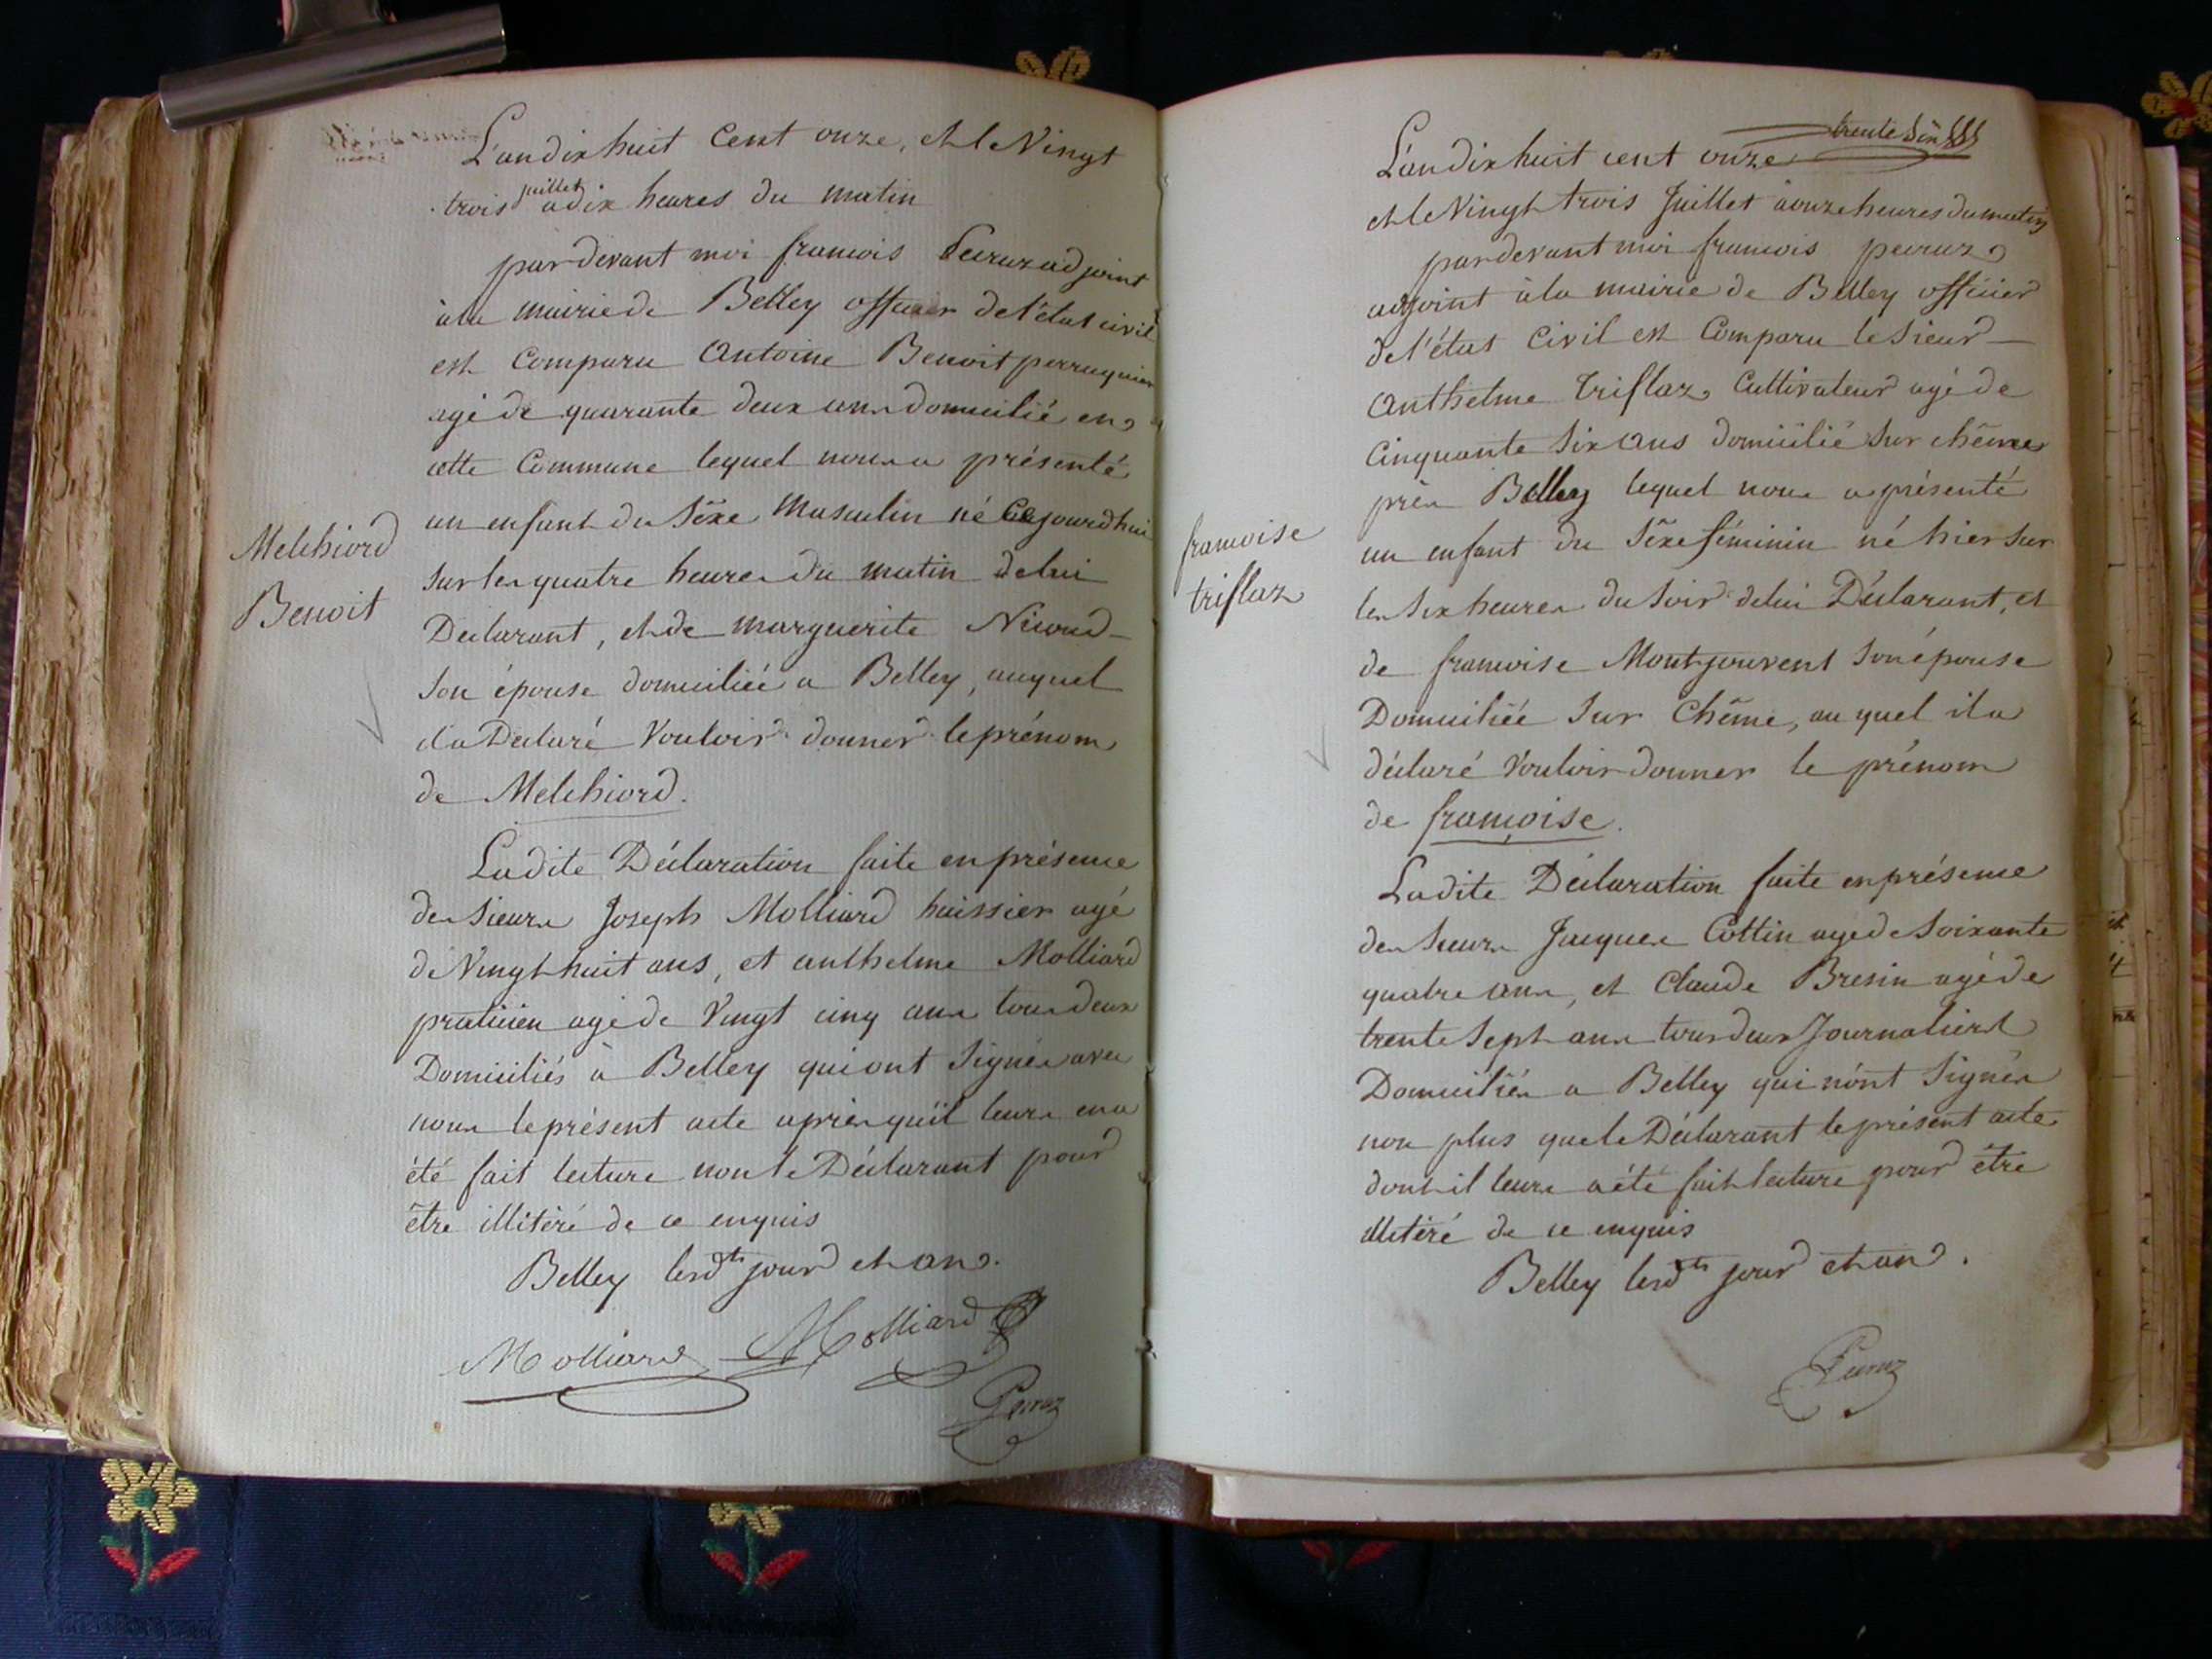 L'an dix huit Cent onze, et le Vingt
trois juillet a dix heures du matin
par devant moi francois Peuruz adjoint
à la mairie de Belley officier de l'état civil
est Comparu Antoine Benoit perruquier
agé de quarante deux ans domicilié en
cette Commune lequel nous a présenté
un enfant du Sexe Masculin né Cejourdhui
Melchiord
Benoit
sur les quatre heures du matin de lui
Déclarant, et de marguerite Nicoud
son épouse domiciliée a Belley, auquel
il a Déclaré Vouloir donner le prénom
de Melchiord.
Ladite Déclaration faite en présence
des Sieurs Joseph Molliard huissier agé
de Vingt huit ans, et anthelme Molliard
praticien agé de Vingt cinq ans tous deux
Domiciliés à Belley qui ont Signés avec
nous le présent acte après qu'il leurs en a
été fait lecture non le Déclarant pour
être illitéré de ce enquis
Belley lesdts jour et an.
Molliard Molliard
Peuruz
trente Six
L'an dix huit cent onze
et le Vingt trois Juillet à onze heures du matin
par devant moi francois peuruz
adjoint à la mairie de Belley officier
de l'état Civil est Comparu le Sieur
Anthelme triflaz Cultivateur agé de
Cinquante Six ans domicilié Sur chêne
près Belley lequel nous a présenté
un enfant du Sexe féminin né hier sur
francoise
triflaz
les Six heures du Soir de lui Déclarant, et
de francoise Montjouvent Son épouse
Domiciliée Sur Chêne, au quel il a
déclaré Vouloir donner le prénom
de françoise.
Ladite Déclaration faite en présence
des Sieurs Jacques Cottin agé de Soixante
quatre ans, et Claude Bresin agé de
trente Sept ans tous deux Journaliers
Domiciliés a Belley qui n'ont Signés
non plus que le Déclarant le présent acte
dont il leurs a été fait lecture pour être
illitéré de ce enquis
Belley lesdts jour et an.
Peuruz